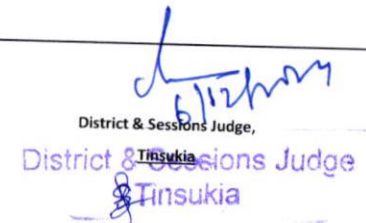 District & Sessions Judge,
Tinsukia
District & Sessions Judge
Tinsukia